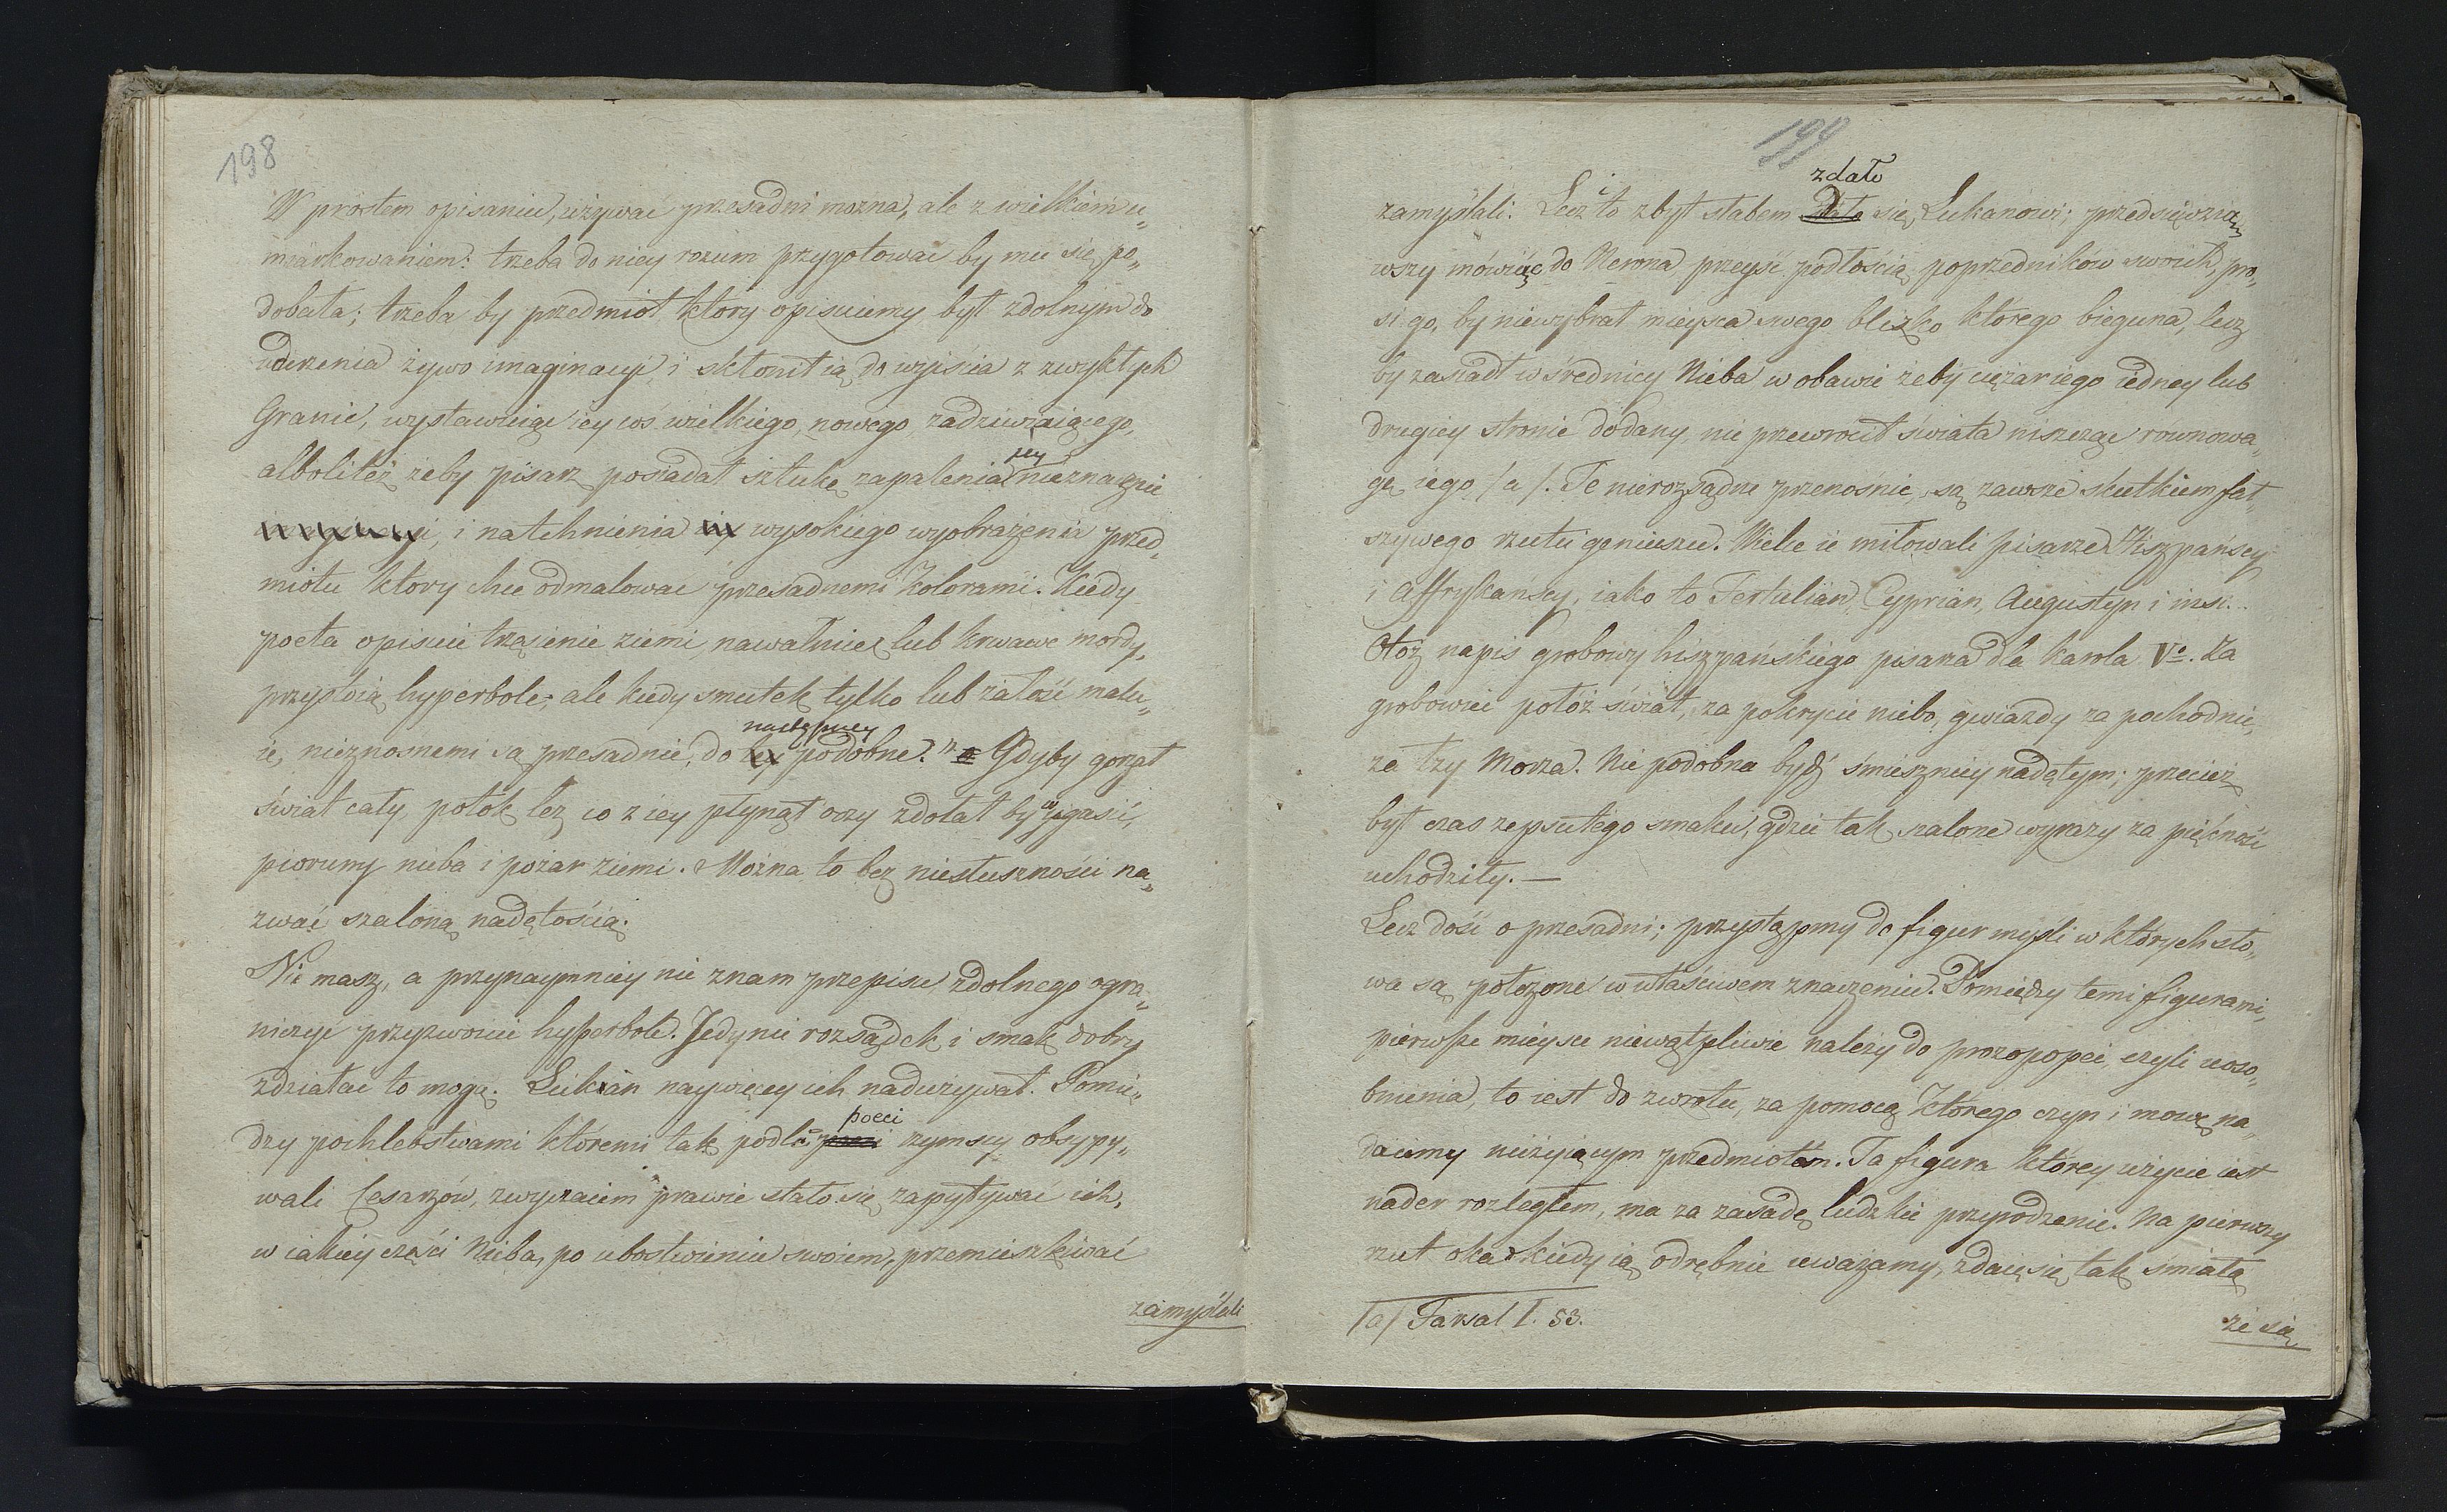 198
W prostem opisaniu, używać przesadni mozna, ale z wielkiem u„
miarkowaniem: trzeba do niey rozum przygotować by mu się po„
dobała; trzeba by przedmiot ktory opisuiemy był zdolnym do
uderzenia żywo imaginacyi i skłonił ią do wyiscia z zwykłych
Granic, wystawuiąc iey cóś wielkiego, nowego, zadziwiaiącego,
alboliteż żeby pisarz posiadał sztukę zapalenia iey nieznacznie
imaginacyi, i natchnienia iey wysokiego wyobrażenia przed„
miotu ktory chce odmalowac przesadnemi kolorami. Kiedy
poeta opisuie trzęsienie ziemi, nawałnicę lub krwawe mordy,
przystoią hyperbole; ale kiedy smutek tylko lub żałość malu„
ie, nieznosnemi są przesadnie, do tey następuiey podobne. "a Gdyby gorzał
świat cały, potok łez co z iey płynął oczy zdołał by ugasić,
pioruny nieba i pożar ziemi. Można to bez niesłuszności na„
zwać szaloną nadętością.
Nie masz, a przynaymniey nie znam przepisu zdolnego ogra„
niczyć przyzwoicie hyperbole. Jedynie rozsądek i smak dobry
zdziałać to mogą. Lukan naywięcey ich nadużywał. Pomię„
dzy pochlebstwami któremi tak podli poeci rzymscy obsypy„
wali Cesarzów, zwyczaiem prawie stało się zapytywać ich,
w iakiey części Nieba, po ubostwieniu swoiem, przemieszkiwać
zamyślali
199
zamyślali. Lecz i to zbyt słabem zdało się Lukanowi; przedsięwzią„
wszy mówiąc do Nerona przeyść podłością poprzedników swoich, pro„
si go, by niewybrał mieysca swego blizko którego bieguna, lecz
by zasiadł w średnicy Nieba w obawie żeby ciężar iego iedney lub
drugiey stronie dodany, nie przewrócił świata niszcząc równowa„
gę iego /a/. Te nierozsądne przenośnie, są zawsze skutkiem fał„
szywego rzutu geniuszu. Wiele ie miłowali pisarze Hiszpańscy
i Affrykanscy, iako to Tertulian, Cyprian, Augustyn i insi.
Otoż napis grobowy hiszpańskiego pisarza dla Karola Vo. Za
grobowiec połóż świat, za pokrycie niebo, gwiazdy za pochodnie,
za łzy Morza. Nie podobna bydź śmieszniey nadętym; przecież
był czas zepsutego smaku, gdzie tak szalone wyrazy za piękność
uchodziły. —
Lecz dość o przesadni; przystąpmy do figur myśli w których sło„
wa są położone w właściwem znaczeniu. Pomiędzy temi figurami,
pierwsze mieysce niewątpliwie należy do prozopopei, czyli uoso„
bnienia, to iest do zwrotu, za pomocą którego czyn i mowę na„
daiemy nieżyiącym przedmiotom. Ta figura którey użycie iest
nader rozległem, ma za zasadę ludzkie przyrodzenie. Na pierwszy
rzut oka kiedy ią odrębnie uważamy, zdaie się tak śmiałą
/a/ Farsal I. 53.
że się